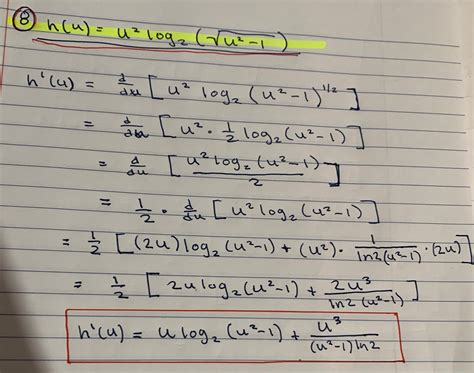 ⑧ h(u) = u² log₂(√(u²-1))
h'(u) = d/du [u² log₂(u²-1)^(1/2)]
= d/du [u² · 1/2 log₂(u²-1)]
= d/du [u² log₂(u²-1) / 2]
= 1/2 · d/du [u² log₂(u²-1)]
= 1/2 [(2u) log₂(u²-1) + (u²) · 1/(ln2(u²-1)) · (2u)]
= 1/2 [2u log₂(u²-1) + 2u³/(ln2(u²-1))]
h'(u) = u log₂(u²-1) + u³/((u²-1) ln2)